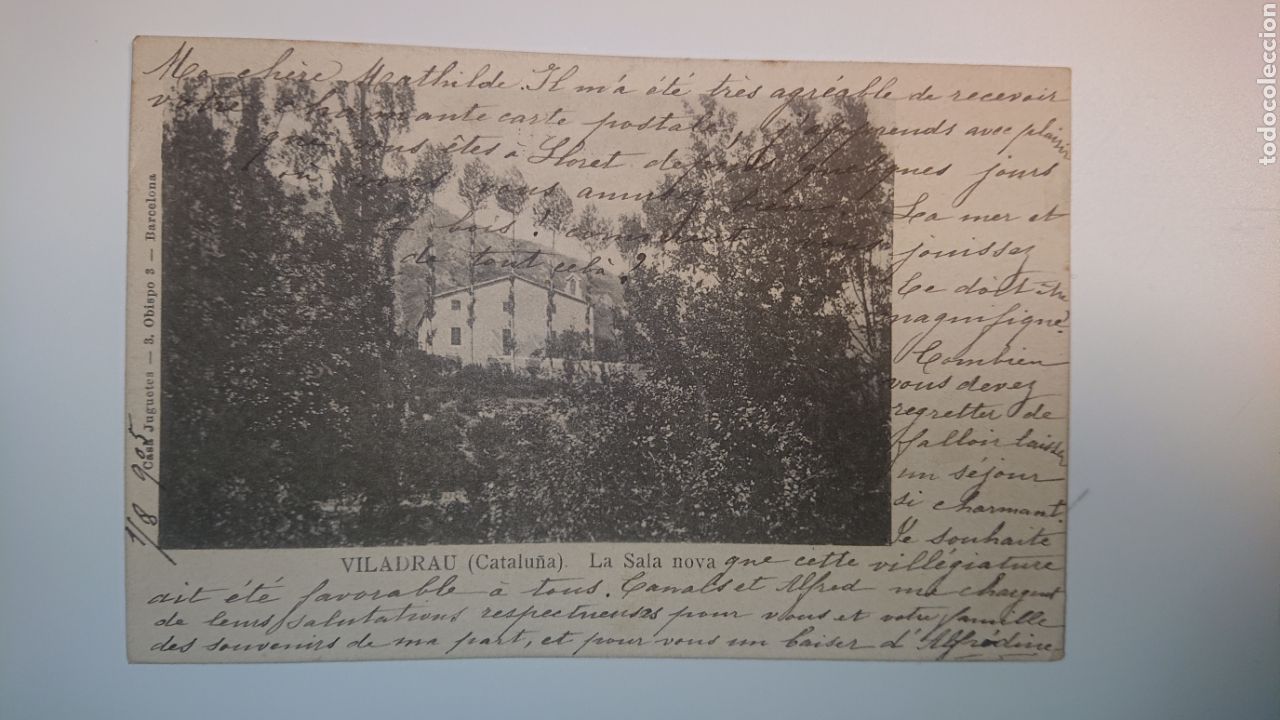 Ma chère Mathilde. Il m'a été très agréable de recevoir
votre charmante carte postale, j'apprends avec plaisir
que vous êtes à Lloret depuis quelques jours
où vous vous amusez bien! La mer et
bois! vous jouissez
de tout cela?
Ce doit être
magnifique.
Combien
vous devez
regretter de
falloir laisser
un séjour
si charmant.
Je souhaite
VILADRAU (Cataluña). La Sala nova
que cette villégiature
ait été favorable à tous. Canals et Alfred me chargent
de leurs salutations respectueuses pour vous et votre famille
des souvenirs de ma part, et pour vous un baiser d'Alfrédine
Casa Juguetes — 3, Obispo 3 — Barcelona
1/8 905
todocoleccion